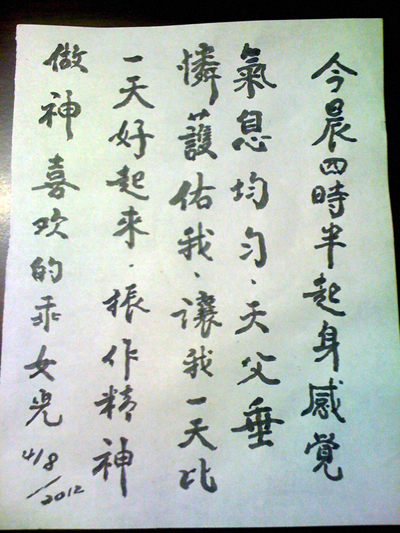 今晨四時半起身感覚
氣息均匀、天父垂
憐護佑我、讓我一天比
一天好起来.振作精神
做神喜欢的乖女児
4/8/2012